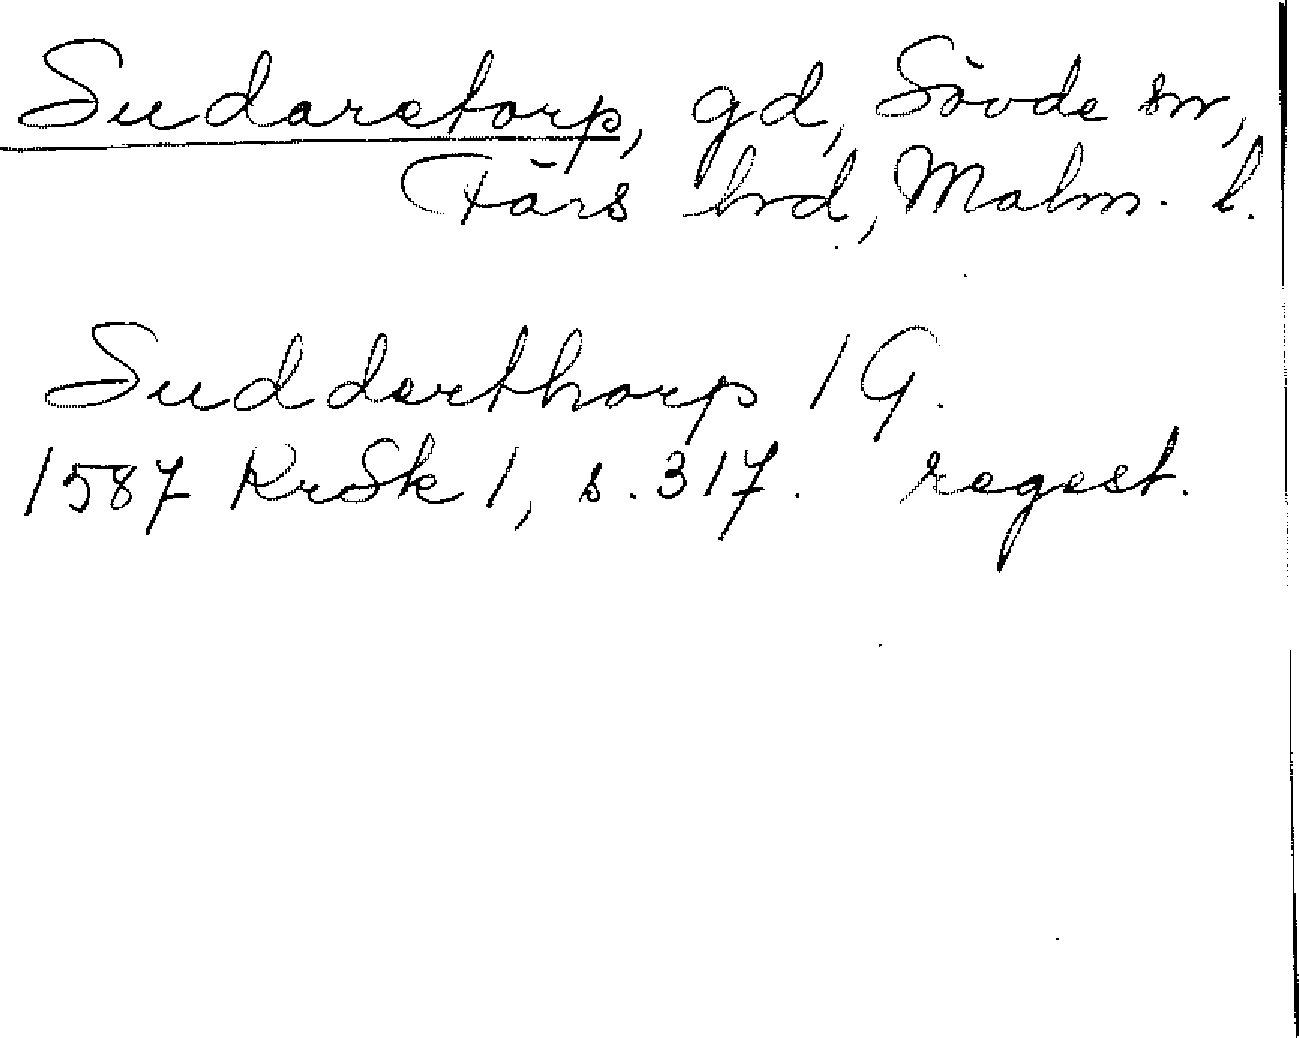 Sudaretorp, gd, Sövde sn,
Färs hrd, Malm. l.
Sudderthorp 1 G.
1587 KrSk 1, s. 317. regest.